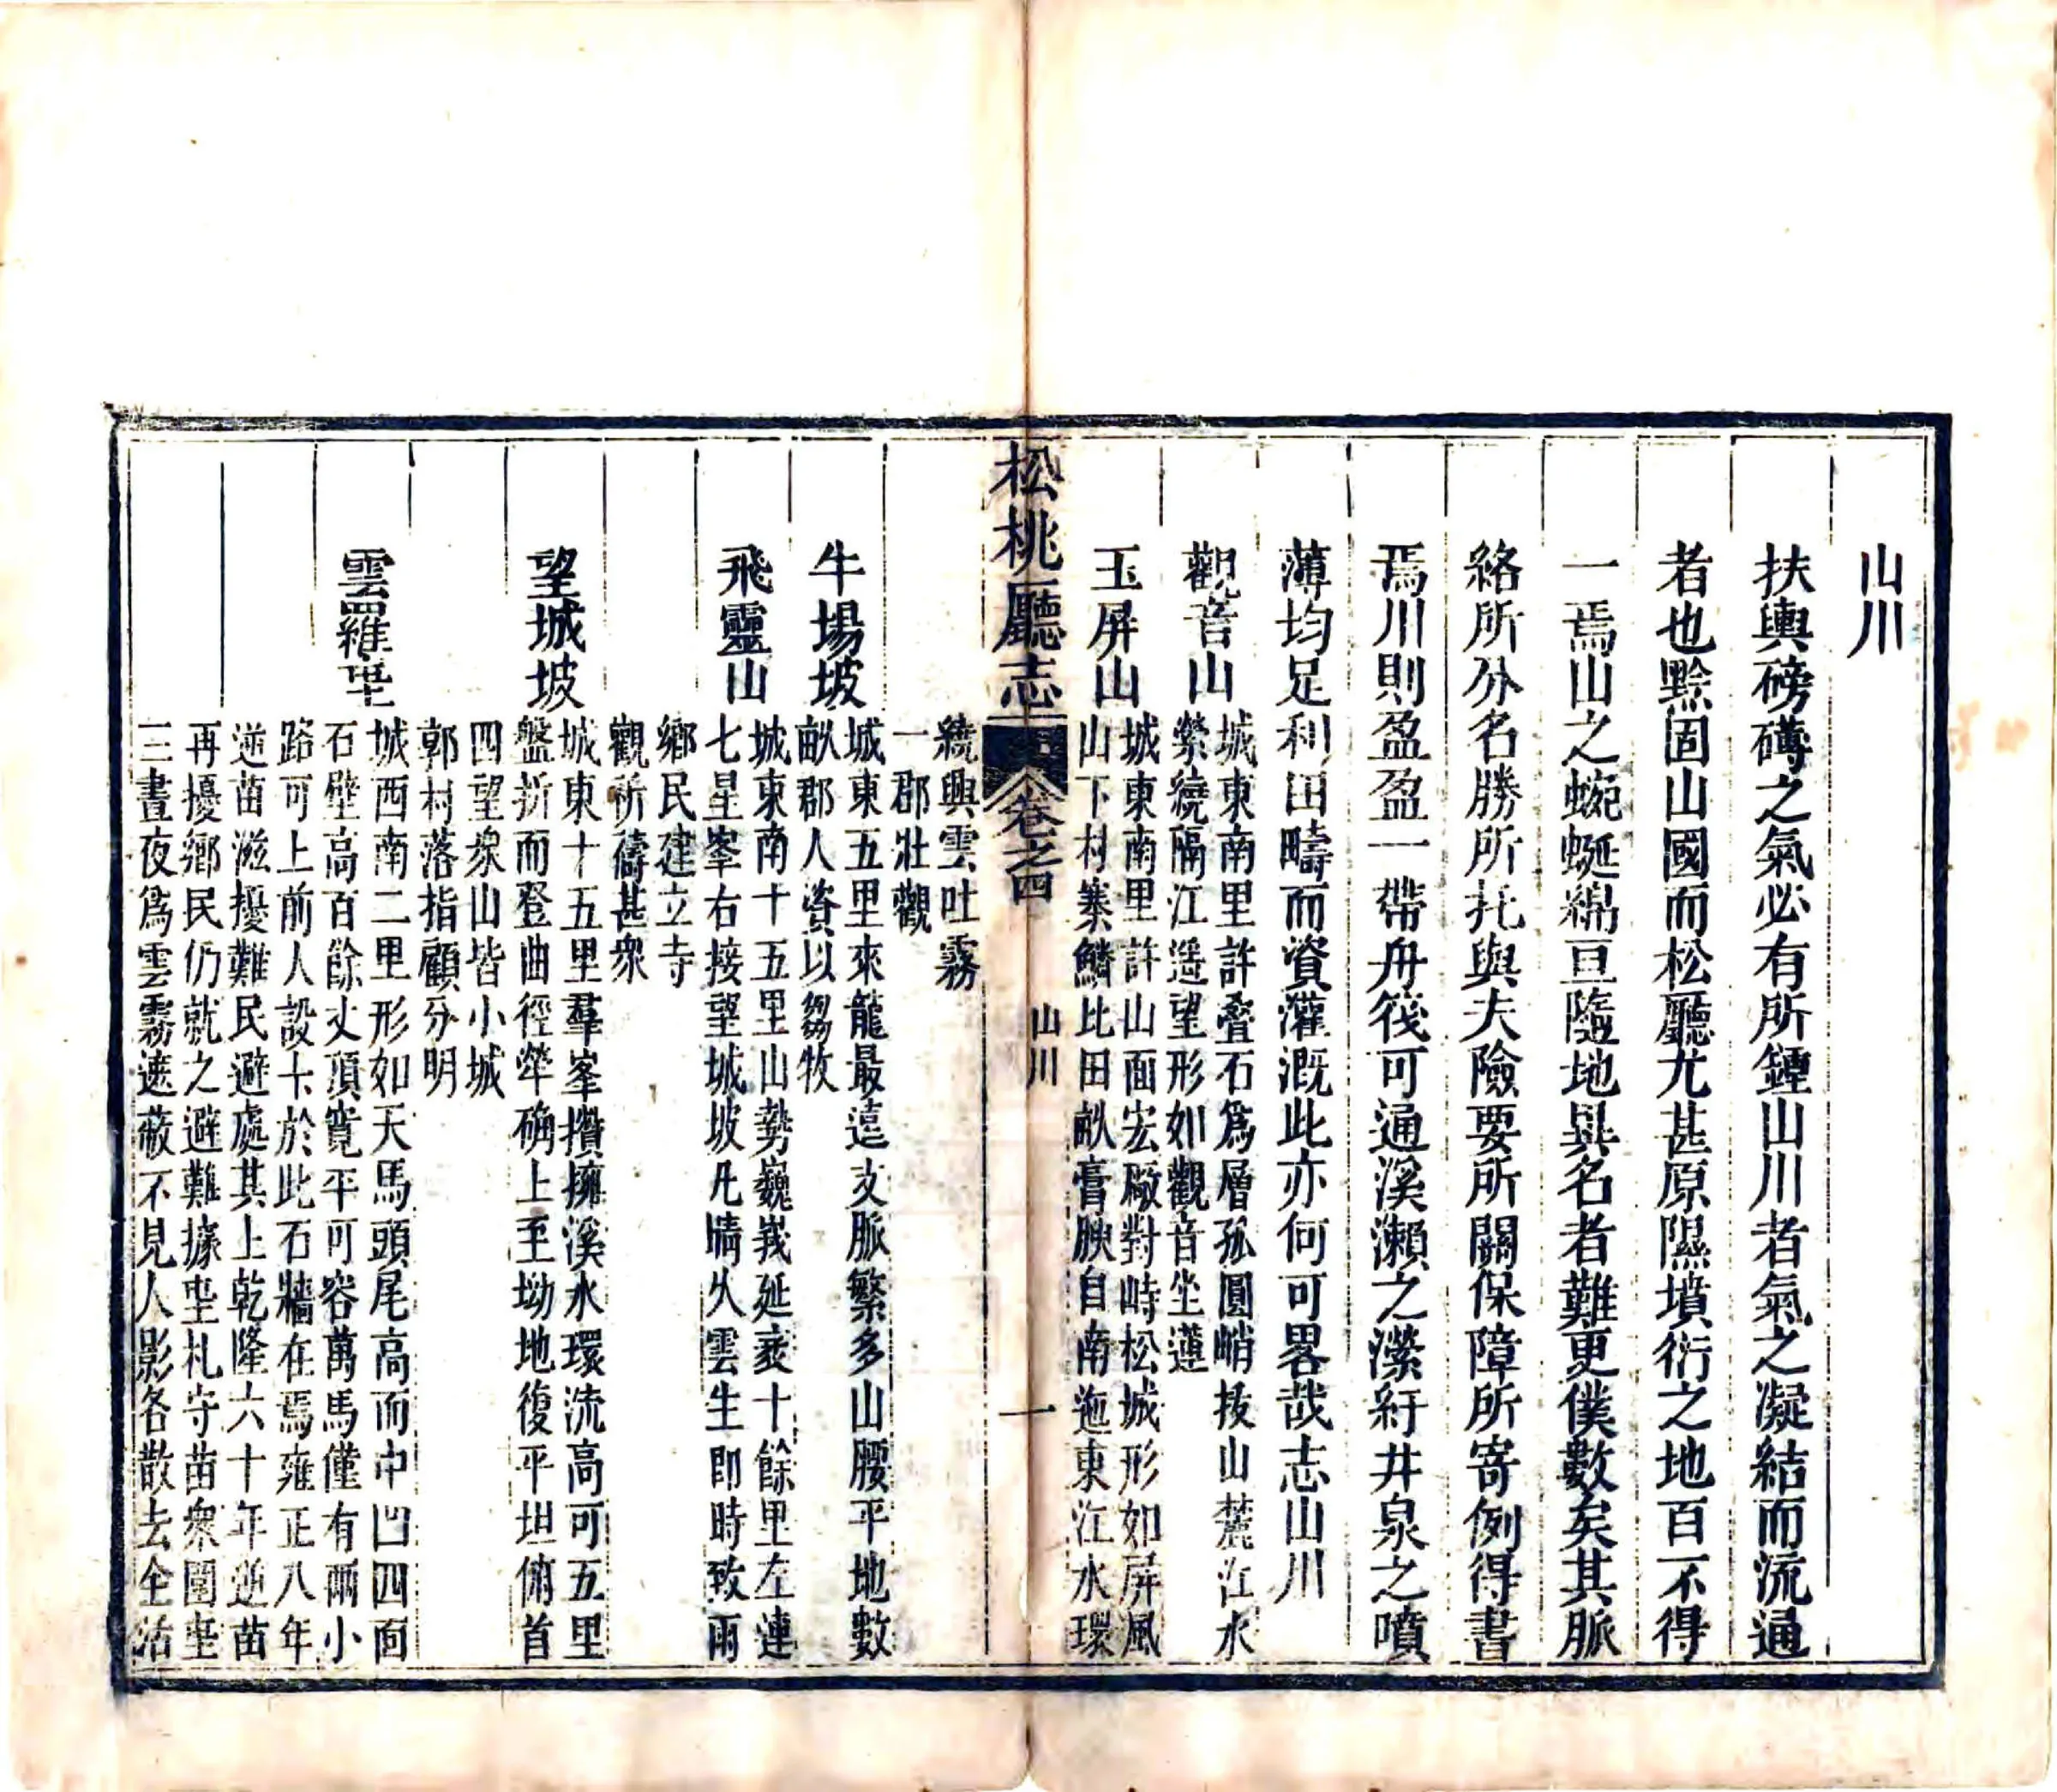 山川
扶輿磅礡之氣必有所鍾山川者氣之凝結而流通
者也黔固山國而松廳尤甚原隰墳衍之地百不得
一焉山之蜿蜒綿亘隨地異名者難更僕數矣其脈
絡所分名勝所托與夫險要所關保障所寄例得書
焉川則盈盈一帶舟筏可通溪瀨之瀠紆井泉之噴
薄均足利田疇而資灌溉此亦何可畧哉志山川
觀音山
城東南里許叠石爲層孤圓峭拔山麓江水
縈繞隔江遥望形如觀音坐蓮
玉屏山
城東南里許山面宏厰對峙松城形如屏風
山下村寨鱗比田畝膏腴自南迤東江水環
松桃廳志
卷之四
山川
一
繞興雲吐霧
一郡壯觀
牛場坡
城東五里來龍最遠支脈繁多山腰平地數
畝郡人資以芻牧
飛靈山
城東南十五里山勢巍峩延袤十餘里左連
七星峯右接望城坡凡晴久雲生即時致雨
鄉民建立寺
觀祈禱甚衆
望城坡
城東十五里羣峯攢擁溪水環流高可五里
盤折而登曲徑犖确上至坳地復平坦俯首
四望衆山皆小城
郭村落指顧分明
雲羅坉
城西南二里形如天馬頭尾高而中凹四面
石壁高百餘丈頂寬平可容萬馬僅有兩小
路可上前人設卡於此石牆在焉雍正八年
逆苗滋擾難民避處其上乾隆六十年逆苗
再擾鄉民仍就之避難據坉札守苗衆圍坉
三晝夜爲雲霧遮蔽不見人影各散去全活